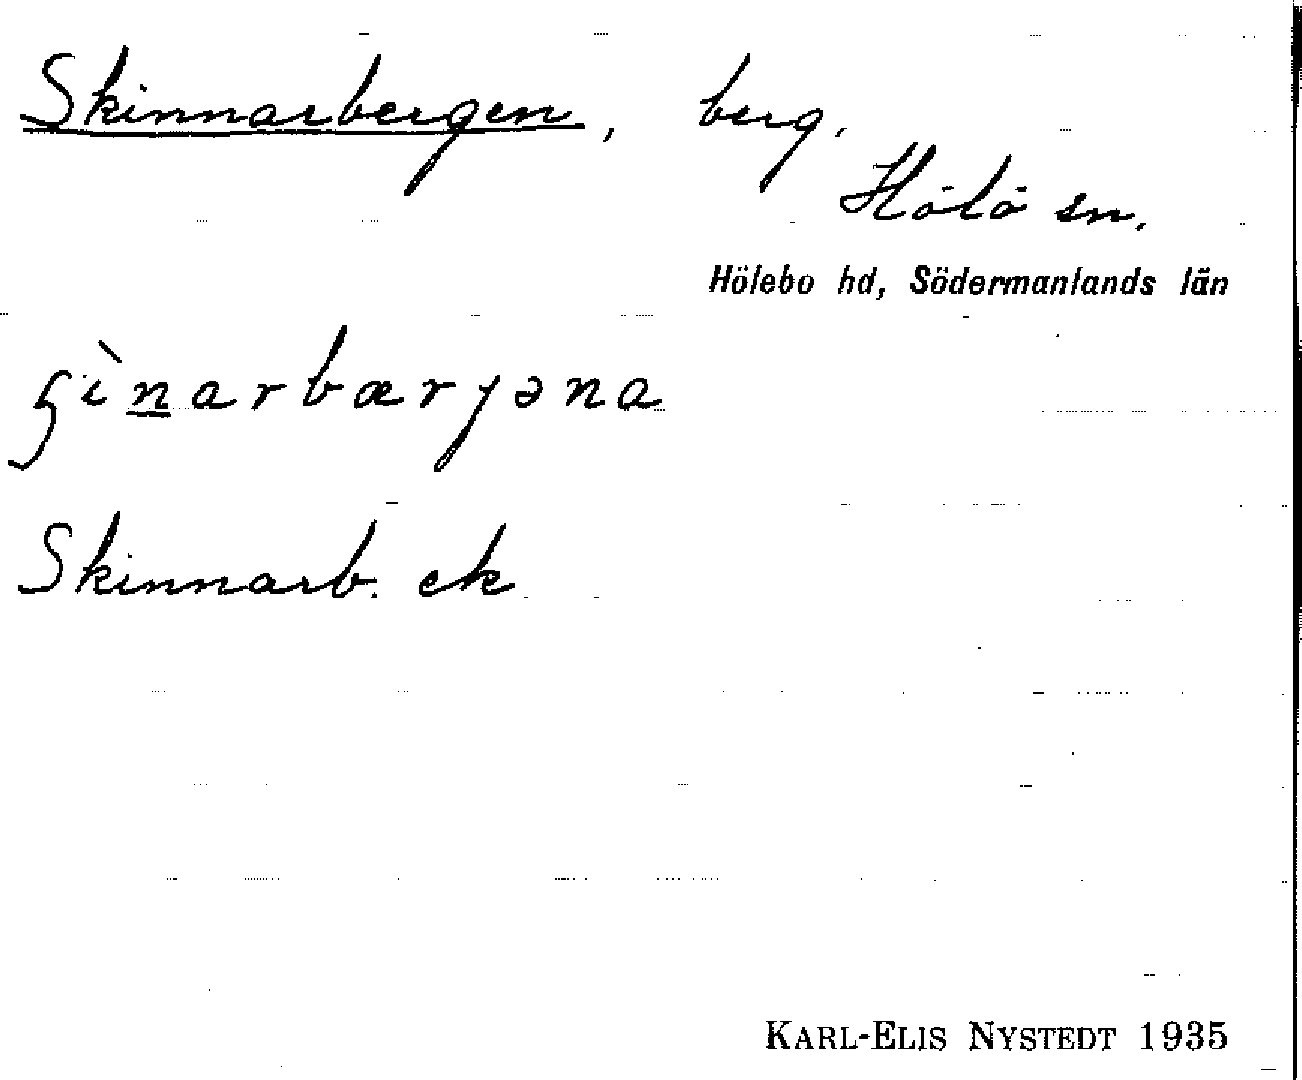 Skinnarbergen, berg.
Hölö sn.
Hölebo hd, Södermanlands län
ʂìnarbærjəna
Skinnarb. ek
KARL-ELIS NYSTEDT 1935